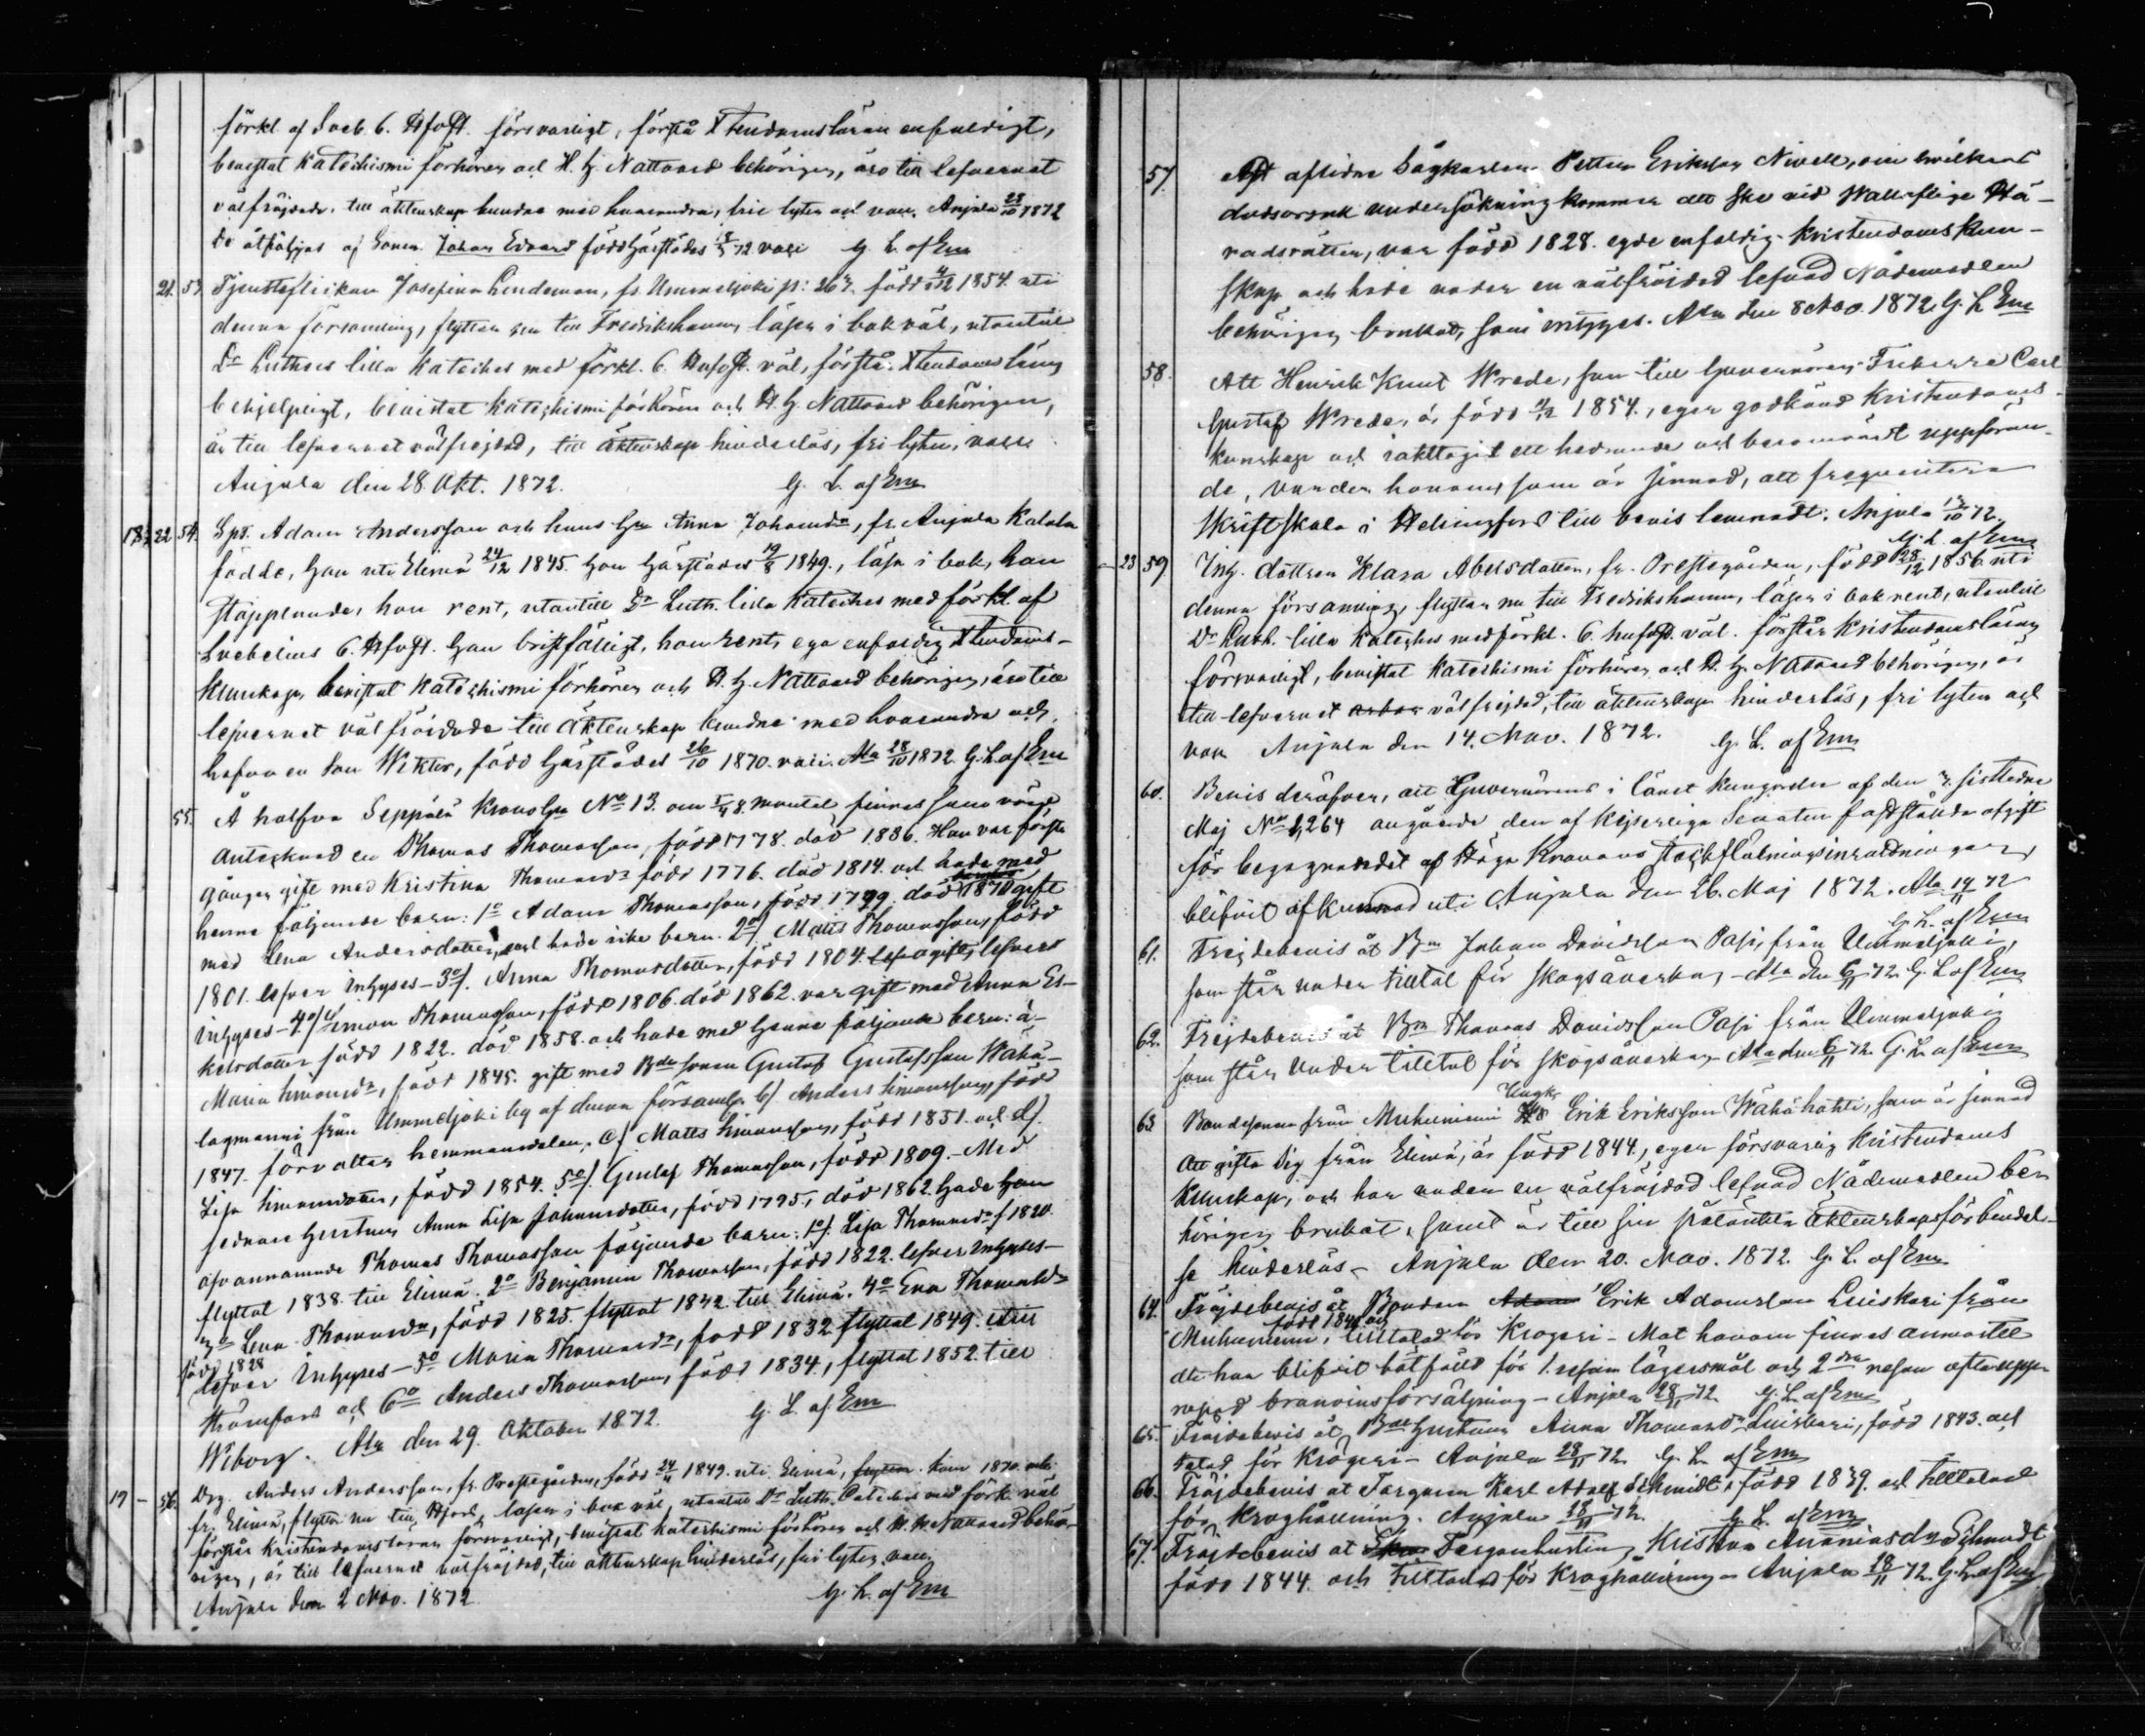 förkl. af Sveb. 6. Hufst. försvarligt, förstå Xtendomsläran enfaldigt,
bevistat Katechismi förhören och H. H. Nattvard behörigen, äro till lefvernet
välfräjdade, till äktenskap bundna med hvarandra, fria lyten och vacc. Anjala 28/10 1872
De åtföljas af Sonen Johan Edvard född härstädes 72 vacc G. L. af Em
21. 53. Tjensteflickan Josefina Lindeman, fr. Ummeljoki p: 267. född 1854. uti
denna församling, flyttar nu till Fredrikshamn, läser i bok väl, utantill
Dr Luthers lilla Kateches med förkl. 6. Hufst. väl, förstår Xtendoms läran
behjelpligt, bevistat Katechismi förhören och H. H. Nattvard behörigen,
är till lefvernet välfrejdad, till äktenskap hinderlös, fri lyten, vacc
Anjala den 28. Okt. 1872. G. L. af Em
18. 22 54. Sps. Adam Andersson och hans Hu Anna Johansdr, fr. Anjala
födde, han uti Elimä 24/12 1845. hon härstädes 19/8 1849., läsa i bok, han
stapplande, hon rent, utantill Dr Luth. lilla Kateches med förkl. af
Svebelius 6. Hufst. han bristfälligt, hon rent, ega enfaldig Xtendoms-
kunskap, bevistat Katechismi förhören och H. H. Nattvard behörigen, äro till
lefvernet välfräjdade till Äktenskap bundne med hvarandra och
hafva en son Wiktor, född härstädes 26/10 1870. vacc. Ala 28/10 1872. G. L. af Em
55. Å halfva Seppälä Kronohn No 13. om mantal finnes som värd
antecknad en Thomas Thomasson, född 1778. död 1836. Han var första
gången gift med Kristina Thomasdr född 1776. död 1814. och hade med
henne följande barn: 1o Adam Thomasson, född 1799. död 1870 gift
med Lena Andersdotter, och hade icke barn. 2o/ Matts Thomasson, född
1801. lefver Inhyses – 3o/. Anna Thomasdotter, född 1804. ogift, lefver
inhyses – 4o/ Simon Thomasson, född 1806. död 1862. var gift med Anna Es-
kelsdotter född 1822. död 1858. och hade med henne följande barn: a-
Maria Simonsdr, född 1845. gift med Bdesonen Gustaf Gustafsson Wähä-
lagmanni från Ummeljoki by af denna församl. b/ Anders Simonsson, född
1847. förvaltar hemmansdelen. c/ Matts Simonsson, född 1851. och d/
Lisa Simonsdotter, född 1854. 5o/. Gustaf Thomasson, född 1809. – Med
sednare hustrun Anna Lisa Johansdotter, född 1795, död 1862. hade han
ofvannämnde Thomas Thomasson följande barn: 1o/. Lisa Thomasdr f 1820.
flyttat 1838. till Elimä. 2o Benjamin Thomasson, född 1822. lefver inhyses –
3o Lena Thomasdr, född 1825. flyttat 1842. till Elimä. 4o Eva Thomasdr
född 1828
lefver Inhyses – 5o Maria Thomasdr, född 1832 flyttat 1849. till
Strömfors och 6o Anders Thomasson, född 1834, flyttat 1852. till
Wiborg. Ala den 29. Oktober 1872. G. L. af Em
19 – 56. Drg. Anders Andersson, fr. Prestegården, född 24/11 1849. uti Elimä, kom 1870.
fr. Elimä, flyttar nu till, läser i bok väl, utantill Dr Luth. Kateches med förk. väl
förstår Kristendomsläran försvarligt, bevistat Katechismi förhören och H. H. Nattvard behö-
rigen, är till lefvernet välfräjdad, till äktenskap hinderlös, fri lyten, vacc
Anjala den 2 Nov. 1872. G. L. af Em
57. Att aflidne Sågkarlen Petter Eriksson Nivell, om hvilkens
dödsorsak undersökning kommer att ske vid Häradsrätten,
var född 1828. egde enfaldig Kristendoms kun-
skap och hade under en välfräjdad lefnad Nådemedlen
behörigen brukat, som intyges. Ala den 8 Nov. 1872. G. L. Em
58. Att Henrik Knut Wrede, son till Guvernören Friherre Carl
Gustaf Wrede, är född 1854., eger godkänd Kristendoms
kunskap och iakttagit ett hedrande och berömvärdt uppföran-
de, varder honom som är sinnad, att frequentera
Skriftskola i Helsingfors till bevis lemnadt. Anjala 72.
G. L. af Em
– 23 59. Inh. dottren Klara Abelsdotter, fr. Prestegården, född 28/12 1856 uti
denna församling, flyttar nu till Fredrikshamn, läser i bok rent, utantill
Dr Luth. lilla Kateches med förkl. 6. hufst. väl. förstår Kristendomsläran
försvarligt, bevistat Katechismi förhören och H. H. Nattvard behörigen, är
till lefvernet välfrejdad, till äktenskap hinderlös, fri lyten och
vacc Anjala den 14. Nov. 1872. G. L. af Em
60. Bevis deröfver, att Guvernörens i länet kungörelse af den 7. sistledne
Maj No 2,264 angående den af Kejserliga Senaten fastställda afgift
för begagnandet af Höga Kronans
blifvit afkunnad uti Anjala den 26. Maj 1872. Ala 14/11 72
G. L. af Em
61. Frejdebevis åt Bn Johan Davidsson Pasi, från Ummeljoki,
som står under tilltal för skogsåverkan – Ala den 72. G. L. af Em
62. Frejdebevis åt Bn Thomas Davidsson Pasi från Ummeljoki
som står under tilltal för skogsåverkan – Ala den 72. G. L. af Em
63. Bondesonen från Muhuniemi Ungk. Erik Eriksson Wähähohti, som är sinnad
att gifta sig från Elimä, är född 1844., eger försvarlig Kristendoms
kunskap, och har under en välfräjdad lefnad Nådemedlen be-
hörigen brukat, samt är till sin påtänkta Äktenskapsförbindel-
se hinderlös – Anjala den 20. Nov. 1872. G. L. af Em
64. Fräjdebevis åt Bonden Erik Adamsson Luiskari från
Muhuniemi, född 1841. och tilltalad för Krögeri – Mot honom finnes anmärkt
att han blifvit botfälld för 1. resan lägersmål och 2dra resan
brännvinsförsäljning – Anjala 28/11 72. G. L. af Em
65. Fräjdebevis åt Bdehustrun Anna Thomasdr Luiskari, född 1843. och
talad för krögeri – Anjala 28/11 72. G. L. af Em
66. Fräjdebevis åt Torparn Karl Adolf Schmidt, född 1839. och tilltalad
för Kroghållning. Anjala 28/11 72. G. L. af Em
67. Fräjdebevis åt Torparehustrun Kristina Ananiasdr Schmidt
född 1844. och tilltalad för Kroghållning – Anjala 28/11 72. G. L. af Em